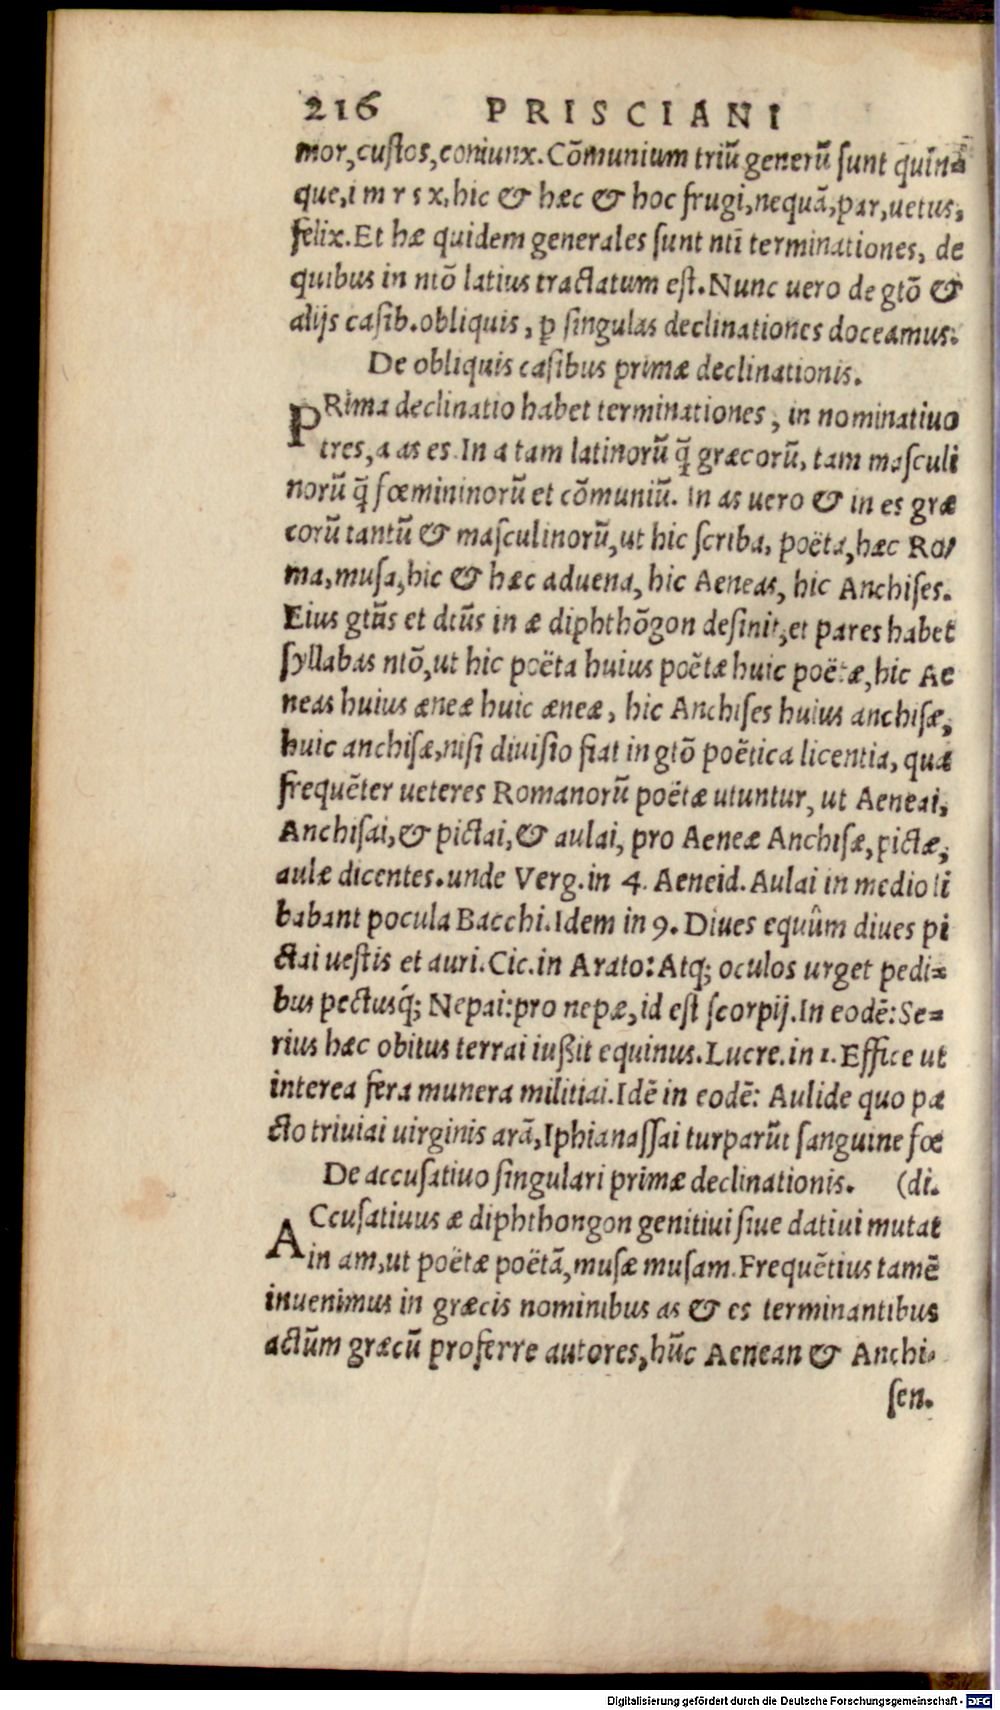 216 PRISCIANI
mor,custos,coniunx.Cōmunium triū generū sunt quin=
que,i m r s x,hic & hæc & hoc frugi,nequā,par,uetus,
felix.Et hæ quidem generales sunt nti terminationes, de
quibus in ntō latius tractatum est.Nunc uero de gtō &
alijs casib.obliquis, ꝑ singulas declinationes doceamus.
De obliquis casibus primæ declinationis.
PRima declinatio habet terminationes, in nominatiuo
tres,a as es.In a tam latinorū q̃ græcorū, tam masculi
norū q̃ fœmininorū et cōmuniū. In as uero & in es græ
corū tantū & masculinorū,ut hic scriba, poëta,hæc Ro/
ma,musa,hic & hæc aduena, hic Aeneas, hic Anchises.
Eius gtūs et dtūs in æ diphthōgon desinit,et pares habet
syllabas ntō,ut hic poëta huius poëtæ huic poëtæ,hic Ae
neas huius æneæ huic æneæ, hic Anchises huius anchisæ,
huic anchisæ,nisi diuisio fiat in gtō poëtica licentia, qua
frequēter ueteres Romanorū poëtæ utuntur, ut Aeneai,
Anchisai,& pictai,& aulai, pro Aeneæ Anchisæ,pictæ,
aulæ dicentes.unde Verg.in 4. Aeneid. Aulai in medio li
babant pocula Bacchi.Idem in 9. Diues equûm diues pi
ctai uestis et auri.Cic.in Arato: Atq; oculos urget pedi=
bus pectusq́; Nepai:pro nepæ,id est scorpij.In eodē: Se=
rius hæc obitus terrai iußit equinus.Lucre.in 1.Effice ut
interea fera munera militiai.Idē in eodē: Aulide quo pa
cto triuiai uirginis arā,Iphianassai turparūt sanguine fœ
De accusatiuo singulari primæ declinationis. (di.
ACcusatiuus æ diphthongon genitiui siue datiui mutat
in am,ut poëtæ poëtā,musæ musam.Frequētius tamē
inuenimus in græcis nominibus as & es terminantibus
actūm græcū proferre autores,hūc Aenean & Anchi-
sen.
Digitalisierung gefördert durch die Deutsche Forschungsgemeinschaft - DFG